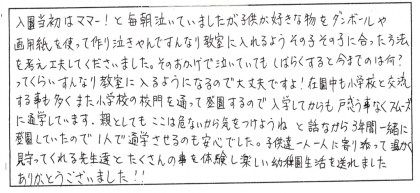 入園当初はママー!と毎朝泣いていましたが子供が好きな物をダンボールや
画用紙を使って作り泣きやんですんなり教室に入れるようその子その子に合った方法
を考え工夫してくださいました。そのおかげで泣いていてもしばらくすると今までのは何?
ってくらいすんなり教室に入るようになるので大丈夫ですよ!在園中も小学校と交流
する事も多くまた小学校の校門を通って登園するので入学してからも戸惑う事なくスムーズ
に通学しています。親としてもここは危ないから気をつけようねと話ながら3年間一緒に
登園していたので1人で通学させるのも安心でした。子供達一人一人に寄り添って温かく
見守ってくれる先生達とたくさんの事を体験し楽しい幼稚園生活を送れました
ありがとうございました!!